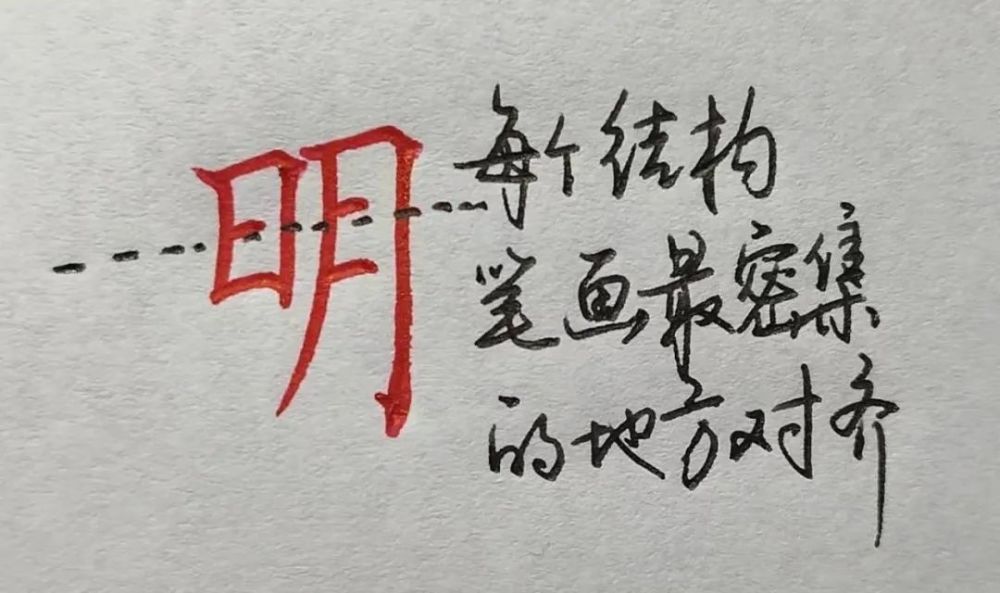 明
每个结构
笔画最密集
的地方对齐